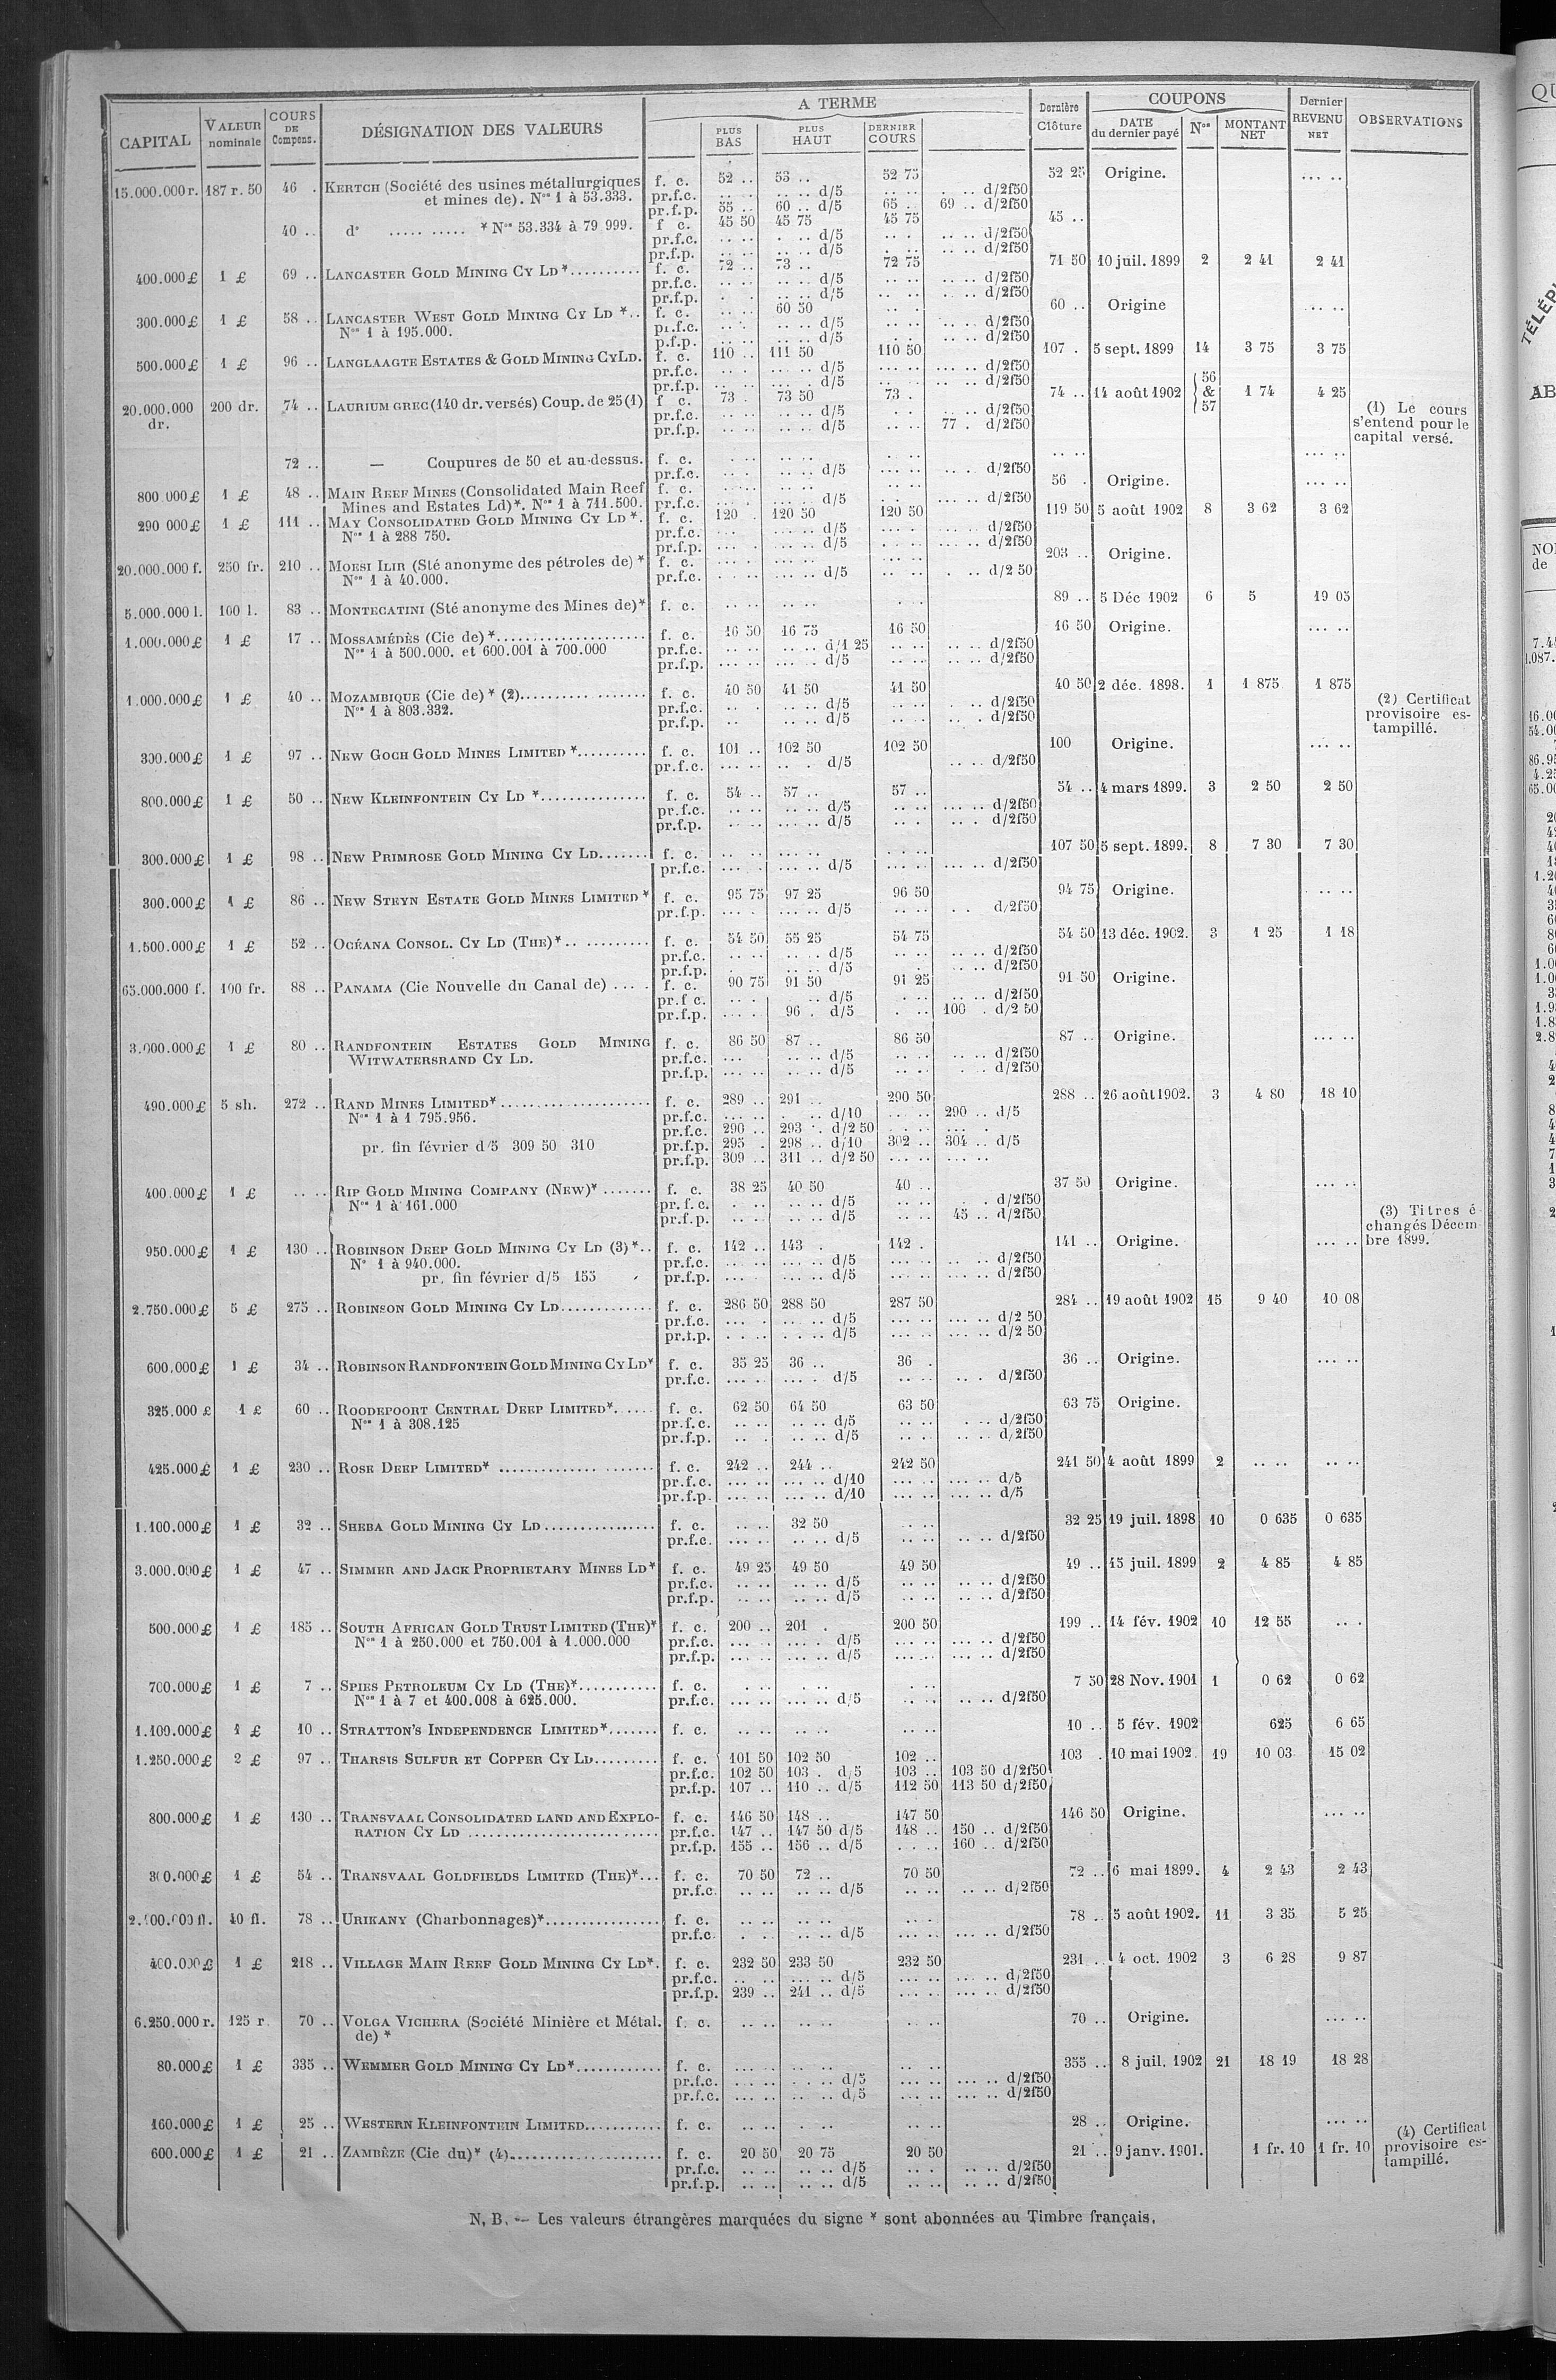 CAPITAL VALEUR nominale COURS DE Compens. DÉSIGNATION DES VALEURS A TERME PLUS BAS PLUS HAUT DERNIER COURS Dernière Clôture COUPONS DATE du dernier payé Nos MONTANT NET Dernier REVENU NET OBSERVATIONS
15.000.000 r. 187 r. 50 46 . KERTCH (Société des usines métallurgiques f. c. 52 .. 53 .. 52 75 52 25 Origine. ... ..
et mines de). Nos 1 à 53.333. pr.f.c. .. .. .. .. d/5 .. .. . .. d/2f50
pr.f.p. 55 .. 60 .. d/5 65 .. 69 .. d/2f50
40 .. do ..... ..... * Nos 53.334 à 79 999. f c. 45 50 45 75 45 75 45 ..
pr.f.c. .. .. . .. d/5 .. . .. .. d/2f50
pr.f.p. .. .. .. .. d/5 . .. .. .. d/2f50
400.000 £ 1 £ 69 .. LANCASTER GOLD MINING CY LD *.......... f. c. 72 .. 73 .. 72 75 71 50 10 juil. 1899 2 2 41 2 41
pr.f.c. .. .. .. .. d/5 .. .. .. .. d/2f50
pr.f.p. . . .. .. d/5 .. .. .. .. d/2f50
300.000 £ 1 £ 58 .. LANCASTER WEST GOLD MINING CY LD *.. f. c. .. .. 60 50 .. . 60 .. Origine ... ..
Nos 1 à 195.000. pr.f.c. .. . .. .. d/5 .. .. .. .. d/2f50
p.f.p. .. .. .. .. d/5 . .. .. .. d/2f50
500.000 £ 1 £ 96 .. LANGLAAGTE ESTATES & GOLD MINING CY LD. f. c. 110 .. 111 50 110 50 107 . 5 sept. 1899 14 3 75 3 75
pr.f.c. .. .. ... .. d/5 ... .. ... .. d/2f50
pr.f.p. .. . ... . d/5 ... .. .. d/2f50
20.000.000 dr. 200 dr. 74 .. LAURIUM GREC (140 dr. versés) Coup. de 25 (1) f c. 73 . 73 50 73 . 74 .. 14 août 1902 56 & 57 1 74 4 25 (1) Le cours
pr.f.c. .. .. .. .. d/5 . . .. .. d/2f50 s'entend pour le
pr.f.p. .. .. .. .. d/5 .. .. 77 . d/2f50 capital versé.
72 .. — Coupures de 50 et au-dessus. f. c. .. .. .. .. . .. .. .. ... ..
pr.f.c. .. . .. .. d/5 ... .. .. . d/2f50
800 000 £ 1 £ 48 .. MAIN REEF MINES (Consolidated Main Reef f. c. .. .. .. .. .. .. 56 . Origine. ... ..
Mines and Estates Ld)*. Nos 1 à 711.500. pr.f.c. ... . .. .. d/5 . .. ... .. d/2f50
290 000 £ 1 £ 111 .. MAY CONSOLIDATED GOLD MINING CY LD *. f. c. 120 . 120 50 120 50 119 50 5 août 1902 8 3 62 3 62
Nos 1 à 288 750. pr.f.c. ... ... .. d/5 ... . ... .. d/2f50
pr.f.p. ... . ... .. d/5 ... .. ... .. d/2f50
20.000.000 f. 250 fr. 210 .. MORSI ILIR (Sté anonyme des pétroles de) * f. c. .. .. ... .. .. .. 203 .. Origine.
Nos 1 à 40.000. pr.f.c. . .. ... .. d/5 .. .. . .. d/2 50
5.000.000 l. 100 l. 83 .. MONTECATINI (Sté anonyme des Mines de)* f. c. .. .. .. .. . . 89 .. 5 Déc 1902 6 5 19 05
1.000.000 £ 1 £ 17 .. MOSSAMÉDÈS (Cie de) *.................... f. c. 16 50 16 75 16 50 16 50 Origine. ... ..
Nos 1 à 500.000. et 600.001 à 700.000 pr.f.c. .. .. .. .. d/1 25 .. .. .. .. d/2f50
pr.f.p. ... .. ... .. d/5 .. .. .. .. d/2f50
1.000.000 £ 1 £ 40 .. MOZAMBIQUE (Cie de) * (2)................. f. c. 40 50 41 50 41 50 40 50 2 déc. 1898. 1 1 875 1 875 (2) Certificat
Nos 1 à 803.332. pr.f.c. .. . .. .. d/5 .. .. . .. d/2f50 provisoire es-
pr.f.p. .. .. .. d/5 .. .. .. . d/2f50 tampillé.
300.000 £ 1 £ 97 .. NEW GOCH GOLD MINES LIMITED *.......... f. c. 101 .. 102 50 102 50 100 Origine. ... ..
pr.f.c. ... .. .. . d/5 .. .. d/2f50
800.000 £ 1 £ 50 .. NEW KLEINFONTEIN CY LD *............... f. c. 54 .. 57 .. 57 .. 54 .. 4 mars 1899. 3 2 50 2 50
pr.f.c. .. .. ... .. d/5 .. .. ... .. d/2f50
pr.f.p. .. .. ... .. d/5 .. .. .. . d/2f50
300.000 £ 1 £ 98 .. NEW PRIMROSE GOLD MINING CY LD....... f. c. .. .. ... .. . .. 107 50 5 sept. 1899. 8 7 30 7 30
pr.f.c. ... . ... .. d/5 ... .. ... .. d/2f50
300.000 £ 1 £ 86 .. NEW STEYN ESTATE GOLD MINES LIMITED * f. c. 95 75 97 25 96 50 94 75 Origine. .. ..
pr.f.p. ... . ... .. d/5 .. .. . . d/2f50
1.500.000 £ 1 £ 52 .. OCÉANA CONSOL. CY LD (THE)*.. ......... f. c. 54 50 55 25 54 75 54 50 13 déc. 1902. 3 1 25 1 18
pr.f.c. .. .. .. . d/5 .. .. .. .. d/2f50
pr.f.p. . .. .. d/5 . .. .. d/2f50
65.000.000 f. 100 fr. 88 .. PANAMA (Cie Nouvelle du Canal de) ... . f. c. 90 75 91 50 91 25 91 50 Origine.
pr.f c. .. . .. d/5 . .. .. .. d/2f50
pr.f.p. .. . 96 . d/5 . .. 100 . d/2 50
3.000.000 £ 1 £ 80 .. RANDFONTEIN ESTATES GOLD MINING f. c. 86 50 87 .. 86 50 87 .. Origine. ... ..
WITWATERSRAND CY LD. pr.f.c. ... .. .. d/5 .. .. .. .. d/2f50
pr.f.p. ... .. .. .. d/5 .. . . .. d/2f50
490.000 £ 5 sh. 272 .. RAND MINES LIMITED*..................... f. c. 289 .. 291 .. 290 50 288 .. 26 août 1902. 3 4 80 18 10
Nos 1 à 1 795.956. pr.f.c. ... . .. d/10 ... .. 290 .. d/5
pr.f.c. 290 .. 293 . d/2 50 . .. ... .
pr. fin février d/5 309 50 310 pr.f.p. 295 . 298 .. d/10 302 .. 304 .. d/5
pr.f.p. 309 .. 311 .. d/2 50 ... .. ... ..
400.000 £ 1 £ .. .. RIP GOLD MINING COMPANY (NEW)* ....... f. c. 38 25 40 50 40 .. 37 50 Origine. ... ..
Nos 1 à 161.000 pr.f.c. . .. .. .. d/5 .. .. . . d/2f50 (3) Titres é-
pr.f.p. .. .. .. .. d/5 .. .. 45 .. d/2f50 changés Décem-
950.000 £ 1 £ 130 .. ROBINSON DEEP GOLD MINING CY LD (3)*.. f. c. 142 .. 143 . 142 . 141 .. Origine. ... .. bre 1899.
No 1 à 940.000. pr.f.c. ... .. ... .. d/5 ... .. .. .. d/2f50
pr. fin février d/5 155 pr.f.p. ... . ... .. d/5 ... .. ... .. d/2f50
2.750.000 £ 5 £ 275 .. ROBINSON GOLD MINING CY LD............ f. c. 286 50 288 50 287 50 284 .. 19 août 1902 15 9 40 10 08
pr.f.c. ... . .. .. d/5 ... .. ... .. d/2 50
pr.f.p. . .. . .. d/5 ... .. ... .. d/2 50
600.000 £ 1 £ 34 .. ROBINSON RANDFONTEIN GOLD MINING CY LD* f. c. 35 25 36 .. 36 . 36 .. Origine. ... ..
pr.f.c. ... .. ... . d/5 .. .. .. . d/2f50
325.000 £ 1 £ 60 .. ROODEPOORT CENTRAL DEEP LIMITED*. .... f. c. 62 50 64 50 63 50 63 75 Origine.
Nos 1 à 308.125 pr.f.c. .. .. .. .. d/5 .. .. . .. d/2f50
pr.f.p. .. . .. .. d/5 .. .. .. .. d/2f50
425.000 £ 1 £ 230 .. ROSE DEEP LIMITED* ..................... f. c. 242 .. 244 .. 242 50 241 50 4 août 1899 2 .. .. .. ..
pr.f.c. ... .. ... .. d/10 ... .. ... .. d/5
pr.f.p. ... .. ... .. d/10 ... .. ... .. d/5
1.100.000 £ 1 £ 32 .. SHEBA GOLD MINING CY LD................ f. c. .. .. 32 50 .. .. 32 25 19 juil. 1898 10 0 635 0 635
pr.f.c. .. .. ... .. d/5 .. .. .. .. d/2f50
3.000.000 £ 1 £ 47 .. SIMMER AND JACK PROPRIETARY MINES LD* f. c. 49 25 49 50 49 50 49 .. 15 juil. 1899 2 4 85 4 85
pr.f.c. .. .. .. .. d/5 .. .. .. .. d/2f50
pr.f.p. .. .. .. .. d/5 .. .. .. .. d/2f50
500.000 £ 1 £ 185 .. SOUTH AFRICAN GOLD TRUST LIMITED (THE)* f. c. 200 .. 201 . 200 50 199 .. 14 fév. 1902 10 12 55 .. .
Nos 1 à 250.000 et 750.001 à 1.000.000 pr.f.c. ... .. ... . d/5 ... .. ... .. d/2f50
pr.f.p. ... .. ... .. d/5 ... .. ... .. d/2f50
700.000 £ 1 £ 7 .. SPIES PETROLEUM CY LD (THE)*........... f. c. . .. .. .. .. .. 7 50 28 Nov. 1901 1 0 62 0 62
Nos 1 à 7 et 400.008 à 625.000. pr.f.c. ... .. ... .. d/5 .. .. .. .. d/2f50
1.100.000 £ 1 £ 10 .. STRATTON'S INDEPENDENCE LIMITED*....... f. c. .. .. .. .. .. .. 10 .. 5 fév. 1902 625 6 65
1.250.000 £ 2 £ 97 .. THARSIS SULFUR ET COPPER CY LD......... f. c. 101 50 102 50 102 .. 103 . 10 mai 1902. 19 10 03 15 02
pr.f.c. 102 50 103 . d/5 103 .. 103 50 d/2f50
pr.f.p. 107 .. 110 .. d/5 112 50 113 50 d/2f50
800.000 £ 1 £ 130 .. TRANSVAAL CONSOLIDATED LAND AND EXPLO- f. c. 146 50 148 .. 147 50 146 50 Origine. ... ..
RATION CY LD .......................... pr.f.c. 147 .. 147 50 d/5 148 .. 150 .. d/2f50
pr.f.p. 155 .. 156 .. d/5 . .. 160 .. d/2f50
300.000 £ 1 £ 54 .. TRANSVAAL GOLDFIELDS LIMITED (THE)*... f. c. 70 50 72 .. 70 50 72 .. 6 mai 1899. 4 2 43 2 43
pr.f.c .. .. .. .. d/5 .. .. .. .. d/2f50
fl. 40 fl. 78 .. URIKANY (Charbonnages)*................ f. c. .. .. .. .. .. . 78 .. 5 août 1902. 11 3 35 5 25
pr.f.c. . .. .. .. d/5 ... .. ... .. d/2f50
400.000 £ 1 £ 218 .. VILLAGE MAIN REEF GOLD MINING CY LD*. f. c. 232 50 233 50 232 50 231 .. 4 oct. 1902 3 6 28 9 87
pr.f.c. .. .. ... .. d/5 ... .. ... .. d/2f50
pr.f.p. 239 .. 241 .. d/5 ... .. ... .. d/2f50
6.250.000 r. 125 r. 70 .. VOLGA VICHERA (Société Minière et Métal. f. c. .. .. .. .. .. .. 70 .. Origine. ... ..
de) *
80.000 £ 1 £ 335 .. WEMMER GOLD MINING CY LD*............ f. c. ... .. .. .. .. .. 355 .. 8 juil. 1902 21 18 19 18 28
pr.f.c. ... .. . .. d/5 ... .. ... .. d/2f50
pr.f.c. ... .. .. .. d/5 ... .. ... .. d/2f50
160.000 £ 1 £ 25 .. WESTERN KLEINFONTEIN LIMITED........... f. c. .. .. . .. .. .. 28 .. Origine. ... .. (4) Certificat
600.000 £ 1 £ 21 .. ZAMBÈZE (Cie du)* (4)..................... f. c. 20 50 20 75 20 50 21 .. 9 janv. 1901. 1 fr. 10 1 fr. 10 provisoire es-
pr.f.c. .. .. .. .. d/5 .. . .. .. d/2f50 tampillé.
pr.f.p. .. .. .. .. d/5 .. .. .. .. d/2f50
N. B. — Les valeurs étrangères marquées du signe * sont abonnées au Timbre français.
QU
TÉLÉP
AB